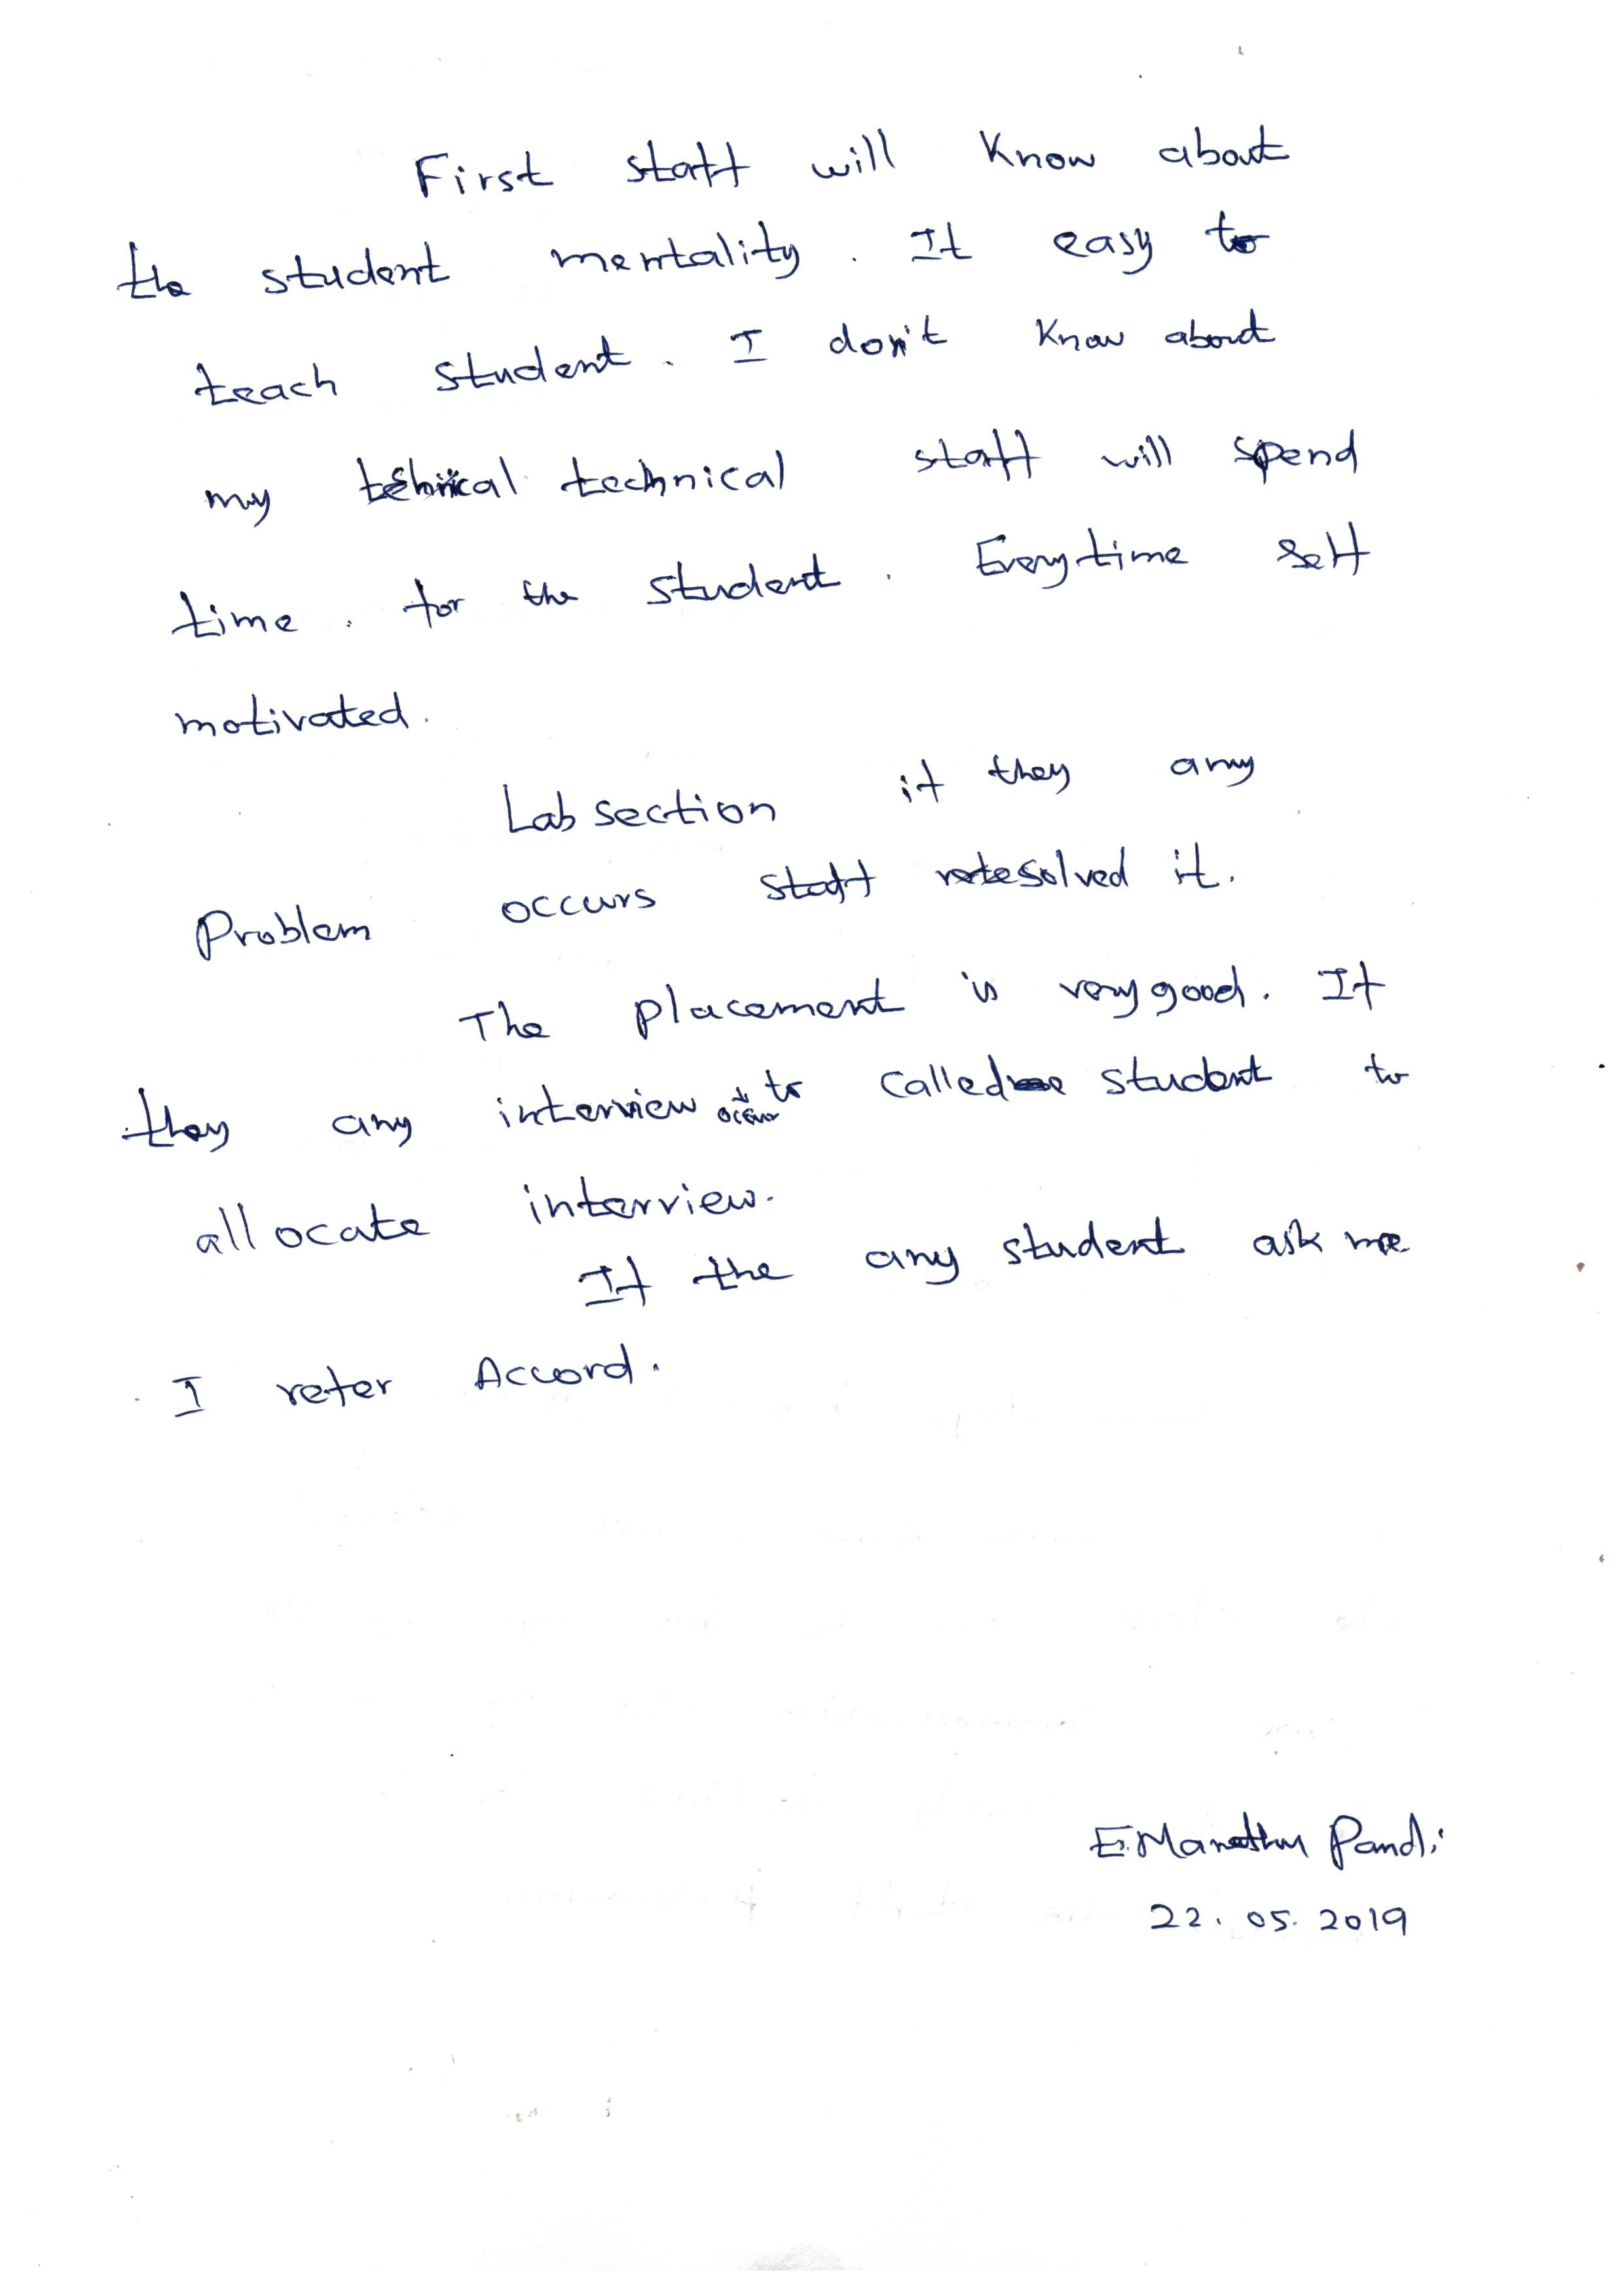 First staff will Know about
the student mentality. It easy to
teach student. I don't Know about
my technical staff will spend
time. for the student. Everytime self
motivated.
Lab section if they any
Problem occurs staff resolved it.
The placement is very good. If
they any interview occur to called student to
allocate interview.
If the any student ask me
I refer Accord.
Pandi
22.05.2019